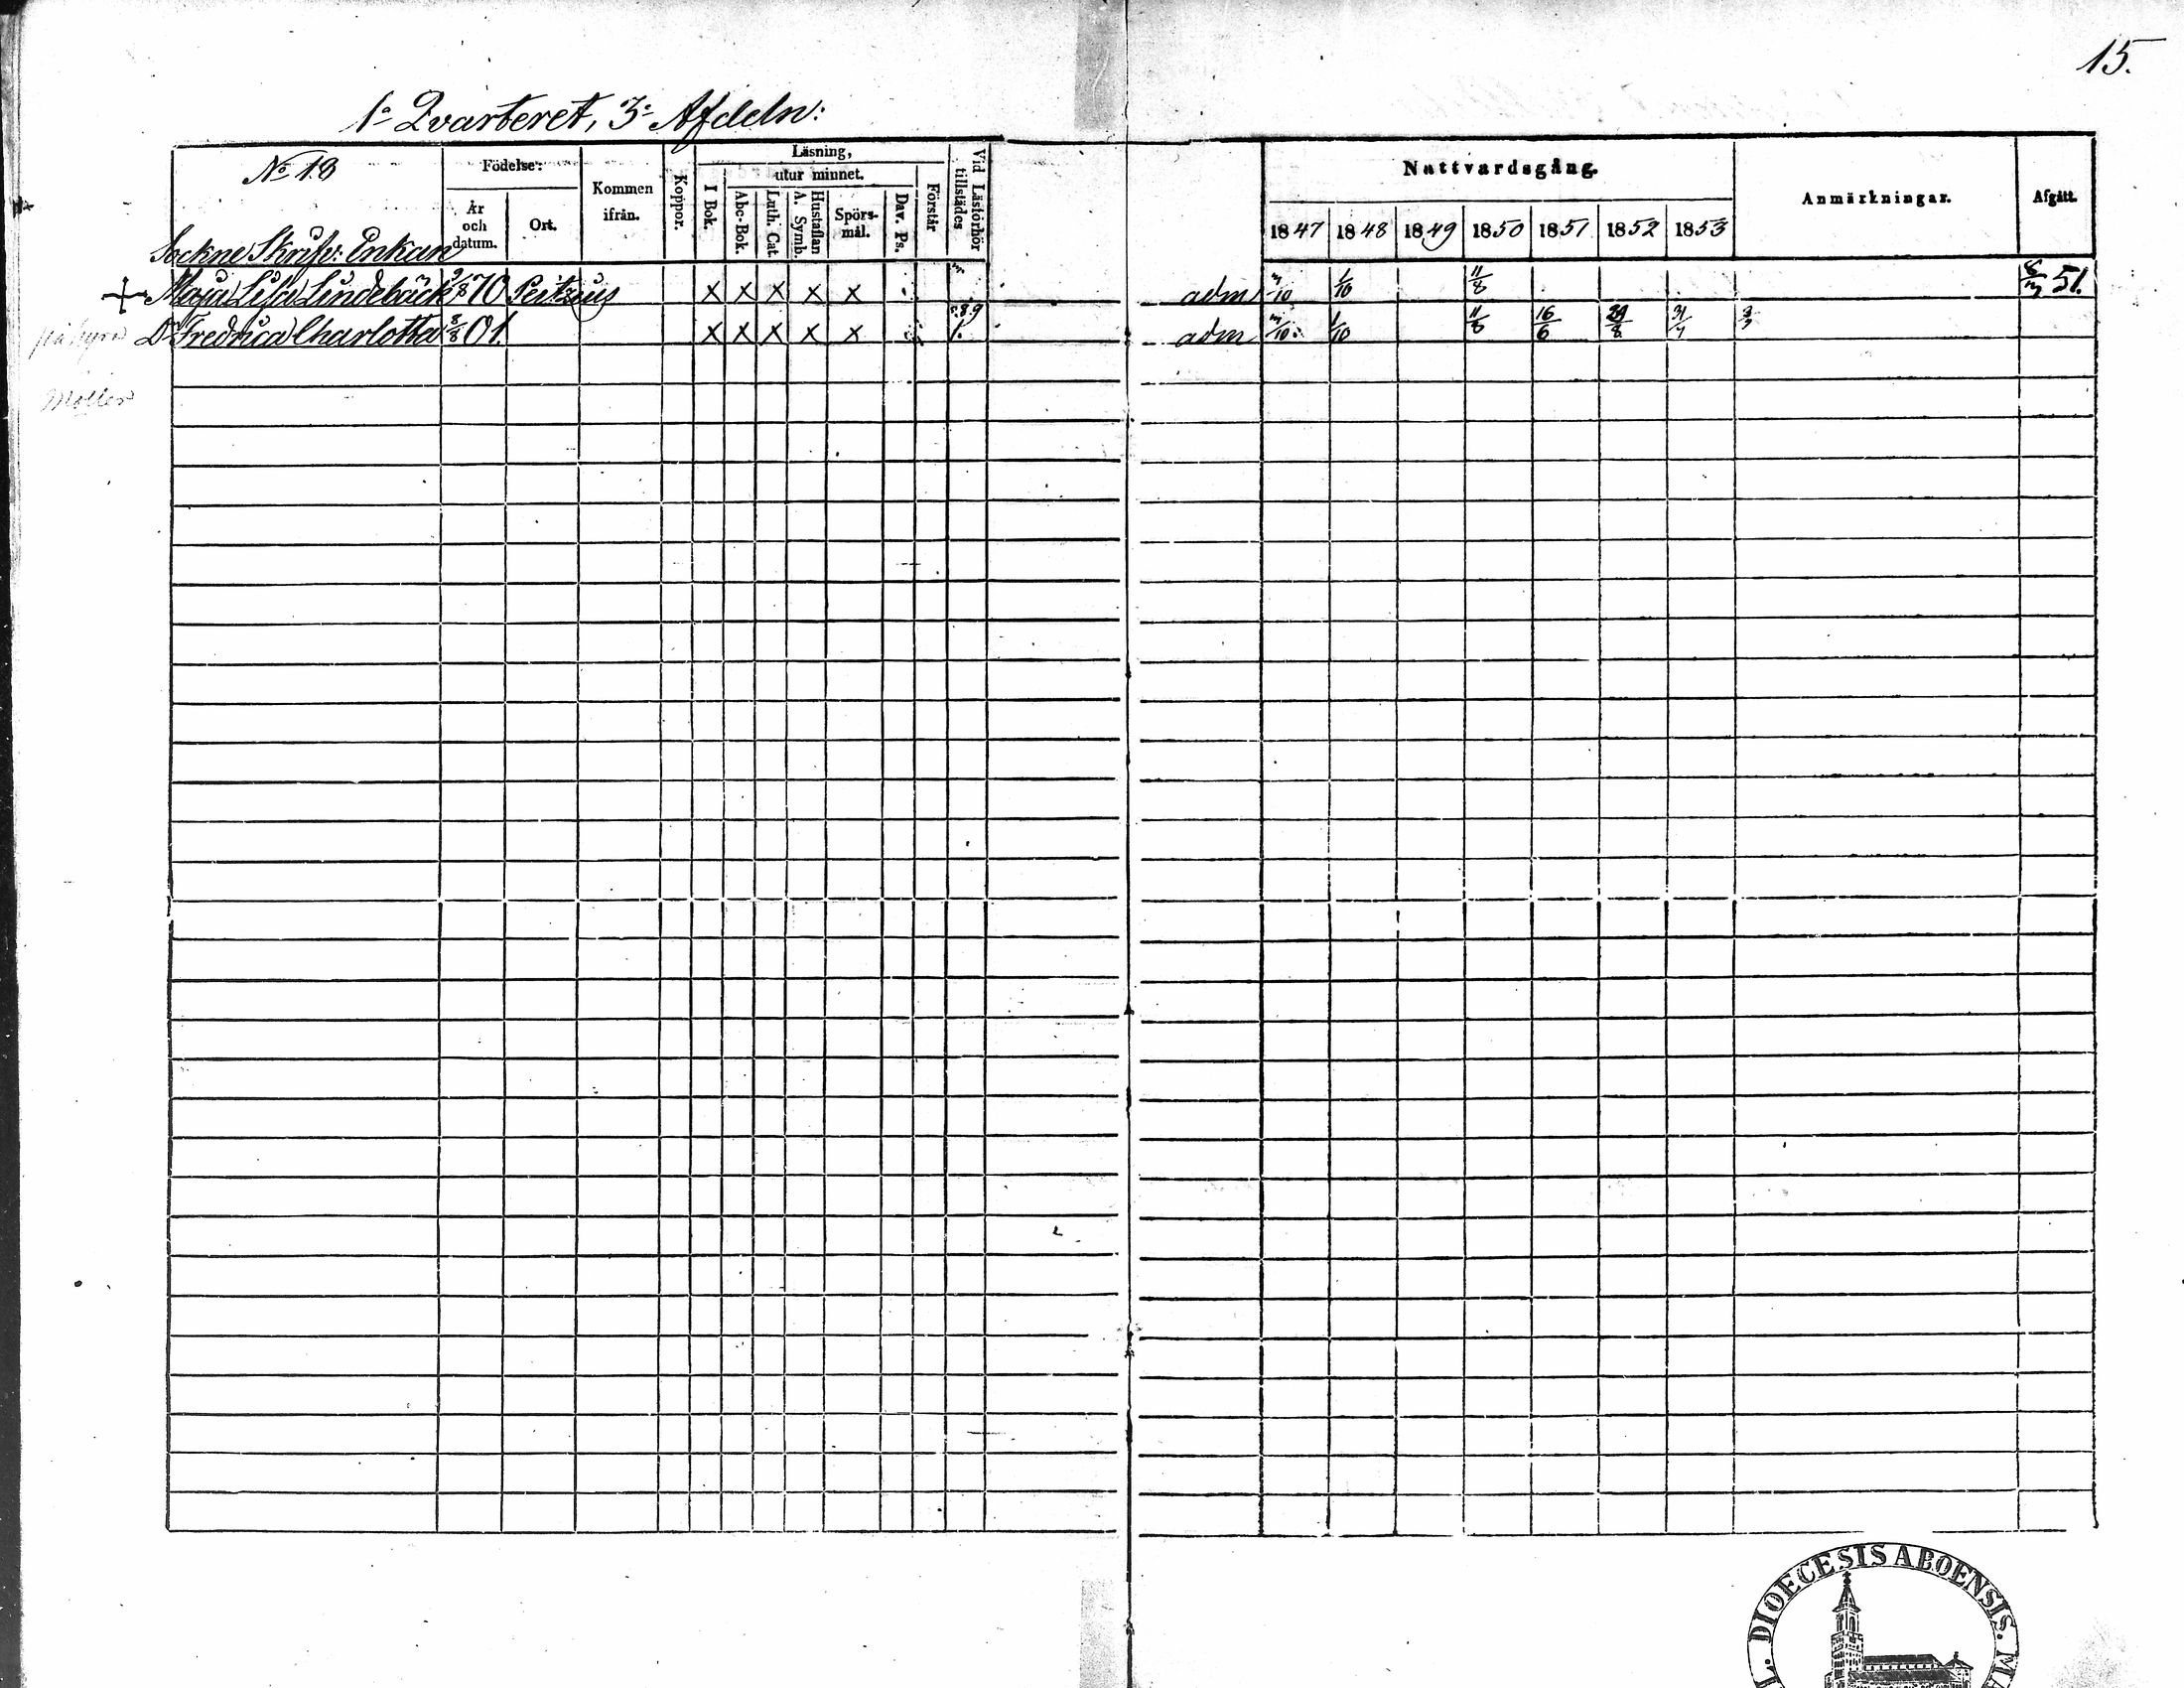 15.
1:a Qvarteret, 3:e Afdeln:
No 18 Födelse: Kommen ifrån. Koppor. Läsning, Vid Läsförhör tillstädes Nattvardsgång. Anmärkningar. Afgått.
År och datum. Ort. I Bok. utur minnet. Förstår
Abc-Bok. Luth. Cat. Hustaflan A. Symb. Spörsmål. Dav. Ps. 1847 1848 1849 1850 1851 1852 1853
Sockne Skrifv: Enkan
+ Maja Lisa Lindebäck 9/8 70 X X X X X adm 1/10 11/8 51.
D:r Fredrica Charlotta 8/8 01. X X X X X 1. adm 1/10 11/8 16/6 29/8 31/7
Moller
L. DIOECESIS ABOENSIS. MA